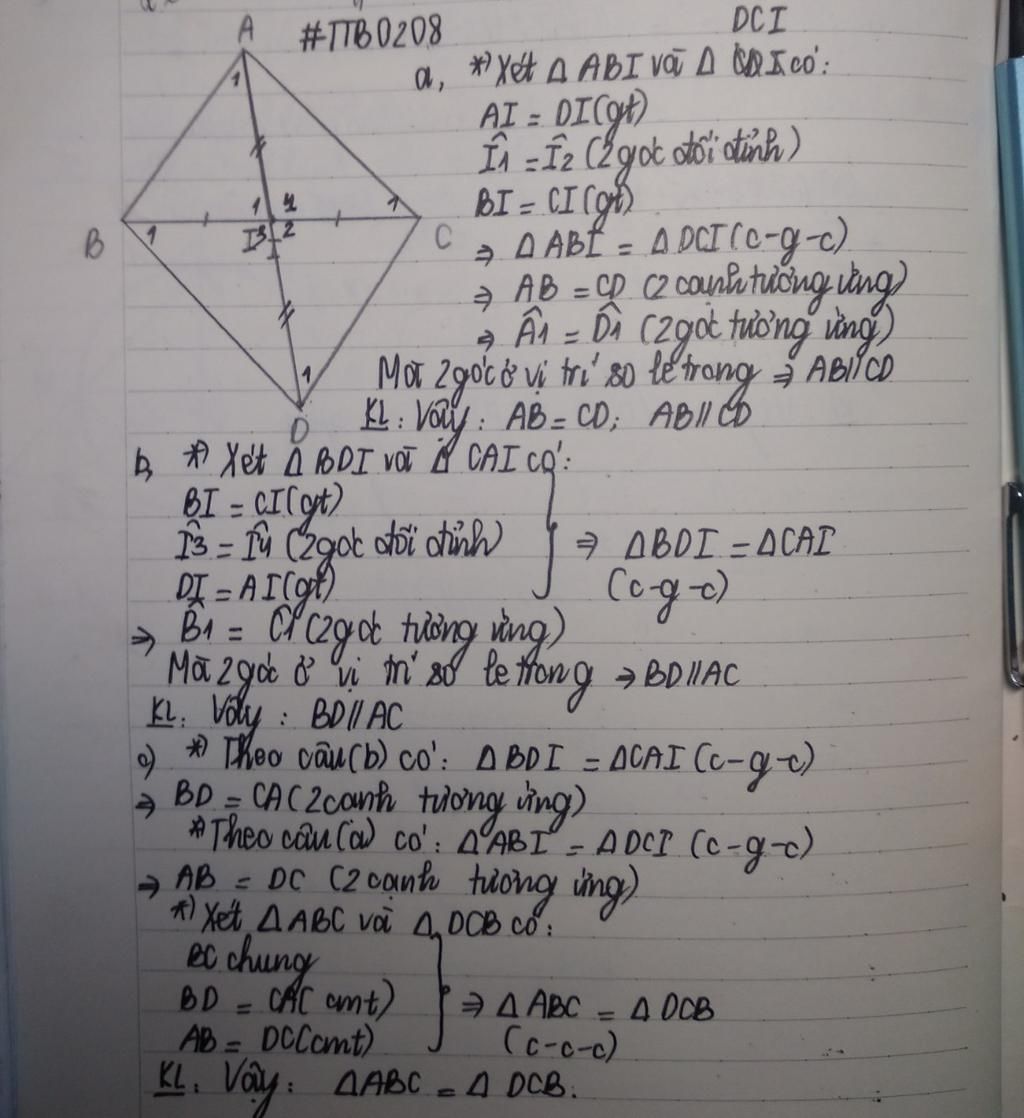 #TTB0208
DCI
A
1
1 4
1
B
1
I3 2
C
1
D
a, *) Xét Δ ABI và Δ CDI có:
AI = DI (gt)
Î1 = Î2 (2 góc đối đỉnh)
BI = CI (gt)
⇒ Δ ABI = Δ DCI (c-g-c)
⇒ AB = CD (2 cạnh tương ứng)
⇒ Â1 = D̂1 (2 góc tương ứng)
Mà 2 góc ở vị trí so le trong ⇒ AB//CD
KL: Vậy: AB = CD; AB // CD
b, *) Xét Δ BDI và Δ CAI có:
BI = CI (gt)
Î3 = Î4 (2 góc đối đỉnh) ⇒ ΔBDI = ΔCAI
DI = AI (gt) (c-g-c)
⇒ B̂1 = Ĉ1 (2 góc tương ứng)
Mà 2 góc ở vị trí so le trong ⇒ BD//AC
KL: Vậy: BD // AC
c) *) Theo câu (b) có: Δ BDI = ΔCAI (c-g-c)
⇒ BD = CA (2 cạnh tương ứng)
*) Theo câu (a) có: Δ ABI = Δ DCI (c-g-c)
⇒ AB = DC (2 cạnh tương ứng)
*) Xét Δ ABC và Δ DCB có:
BC chung
BD = CA (cmt) ⇒ Δ ABC = Δ DCB
AB = DC (cmt) (c-c-c)
KL: Vậy: ΔABC = Δ DCB.